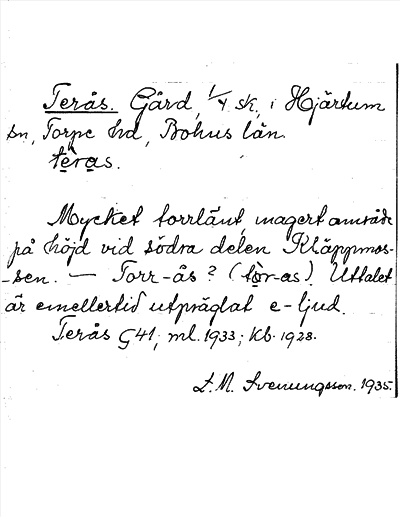 Terås. Gård, 1/4 sk, i Hjärtum
sn, Torpe hd, Bohus län.
tèras.
Mycket torrlänt, magert område
på höjd vid södra delen Kläppmos-
-sen. — Torr-ås? (tòr-as). Uttalet
är emellertid utpräglat e-ljud.
Terås G41; ml. 1933; Kb. 1928.
L. M. Svenungsson. 1935.